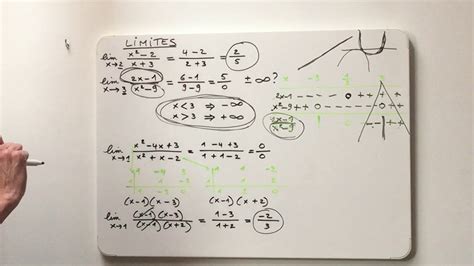 LIMITES
lim x→2 x²-2 / x+3 = 4-2 / 2+3 = 2/5
lim x→3 2x-1 / x²-9 = 6-1 / 9-9 = 5/0 ± ∞ ?
x < 3 ⇒ -∞
x > 3 ⇒ +∞
x -3 3
2x-1 0 + +
x²-9 + + 0 - - - 0 + +
2x-1 / x²-9
lim x→1 x²-4x+3 / x²+x-2 = 1-4+3 / 1+1-2 = 0/0
1 -4 3 1 1 -2
1 1 -3 1 1 2
1 -3 0 1 2 0
(x-1)(x-3) (x-1)(x+2)
lim x→1 (x-1)(x-3) / (x-1)(x+2) = 1-3 / 1+2 = -2/3